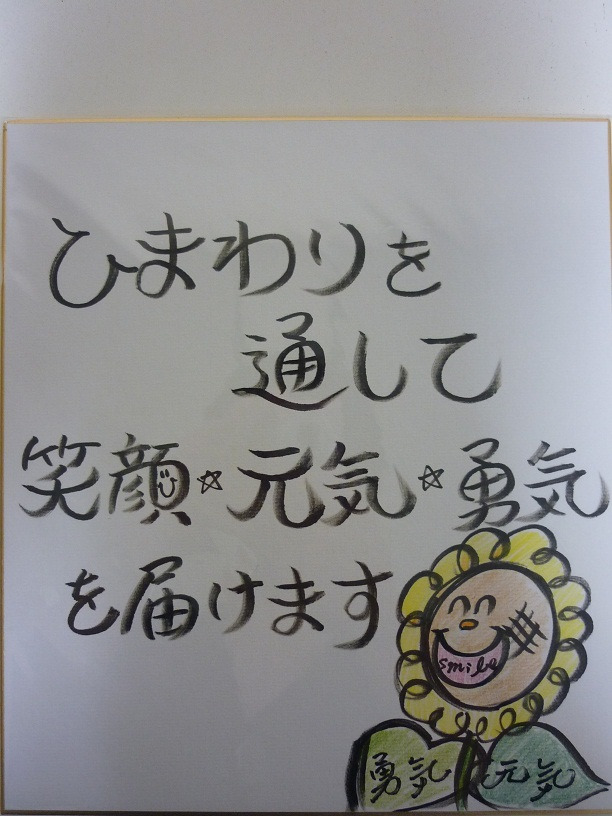 ひまわりを
通して
笑顔☆元気☆勇気
を届けます
smile
勇気 元気